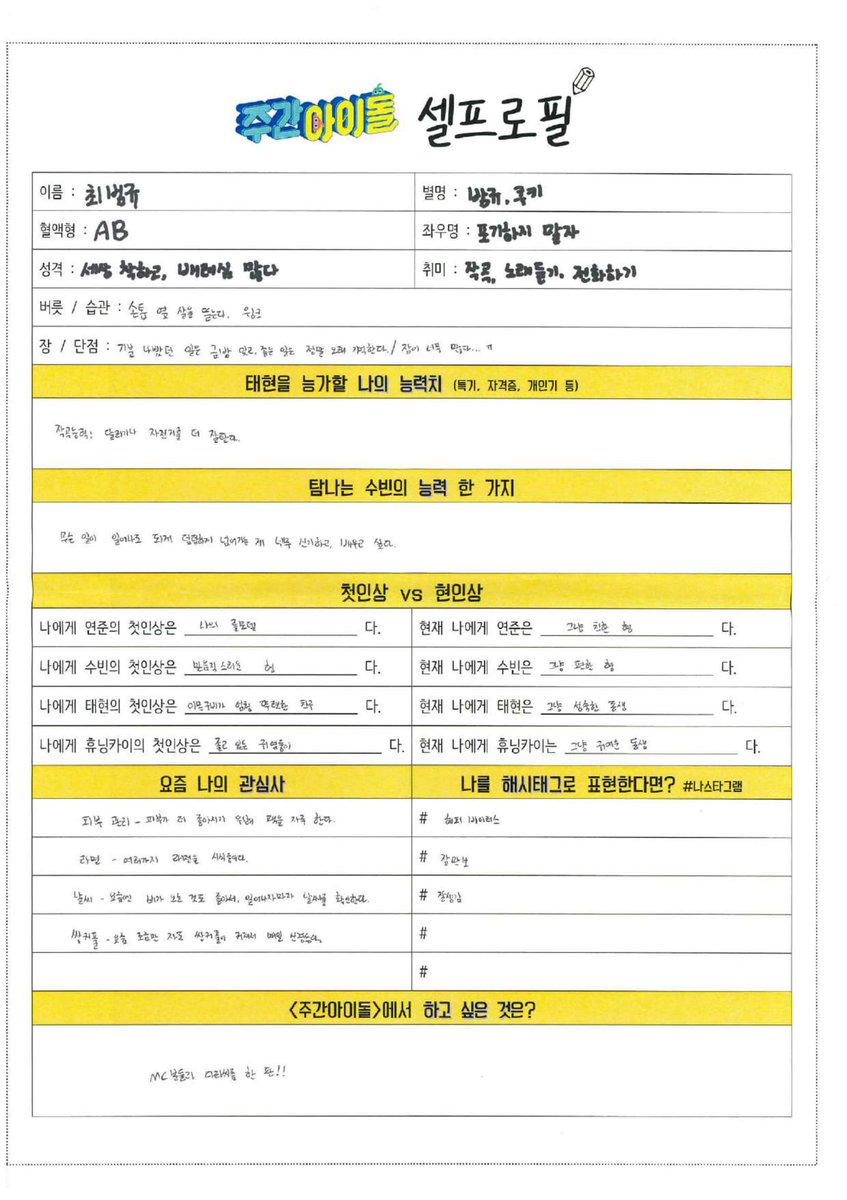 주간아이돌 셀프로필
이름 : 최범규
별명 : 밤규, 쿠키
혈액형 : AB
좌우명 : 포기하지 말자
성격 : 세상 착하고, 배려심 많다
취미 : 작곡, 노래듣기, 전화하기
버릇 / 습관 : 손톱 옆 살을 뜯는다. 윙크
장 / 단점 : 기분 나빴던 일은 금방 잊고, 좋은 일은 정말 오래 기억한다. / 잠이 너무 많다... ㅠ
태현을 능가할 나의 능력치 (특기, 자격증, 개인기 등)
작곡능력; 달리기나 자전거를 더 잘탄다.
탐나는 수빈의 능력 한 가지
무슨 일이 일어나도 되게 덤덤하게 넘어가는 게 너무 신기하고, 배우고 싶다.
첫인상 vs 현인상
나에게 연준의 첫인상은 나의 롤모델 다.
현재 나에게 연준은 그냥 친한 형 다.
나에게 수빈의 첫인상은 믿음직스러운 형 다.
현재 나에게 수빈은 그냥 편한 형 다.
나에게 태현의 첫인상은 이목구비가 엄청 뚜렷한 친구 다.
현재 나에게 태현은 그냥 성숙한 동생 다.
나에게 휴닝카이의 첫인상은 졸고 있는 귀염둥이 다.
현재 나에게 휴닝카이는 그냥 귀여운 동생 다.
요즘 나의 관심사
나를 해시태그로 표현한다면? #나스타그램
피부 관리 - 피부가 더 좋아지기 위해 팩을 자주 한다.
# 해피 바이러스
라면 - 여러가지 라면을 시식중이다.
# 잠만보
날씨 - 요즘엔 비가 오는 것도 좋아서, 일어나자마자 날씨를 확인한다.
# 잘생김
쌍커풀 - 요즘 조금만 자도 쌍커풀이 커져서 매일 신경쓴다.
#
#
<주간아이돌>에서 하고 싶은 것은?
MC분들과 허벅씨름 한 판!!